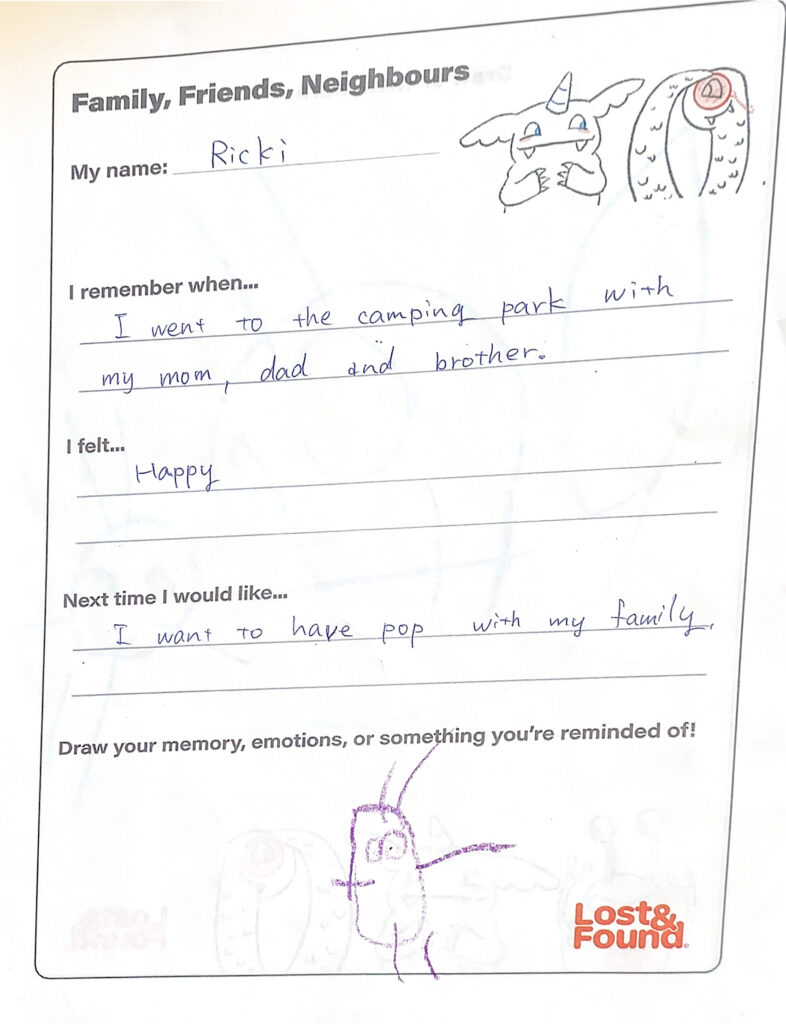 Family, Friends, Neighbours
My name: Ricki
I remember when...
I went to the camping park with
my mom, dad and brother.
I felt...
Happy
Next time I would like...
I want to have pop with my family.
Draw your memory, emotions, or something you're reminded of!
Lost&
Found